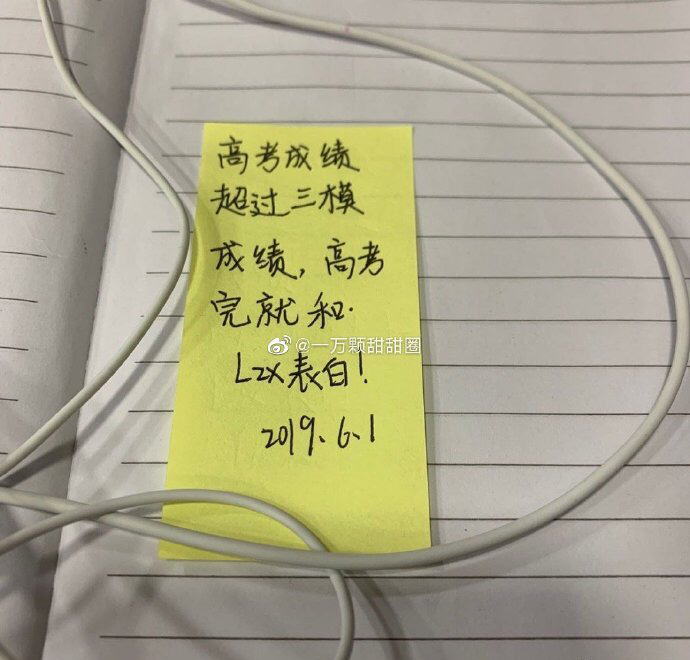 高考成绩
超过三模
成绩，高考
完就和
@一万颗甜甜圈
Lzx表白！
2019.6.1